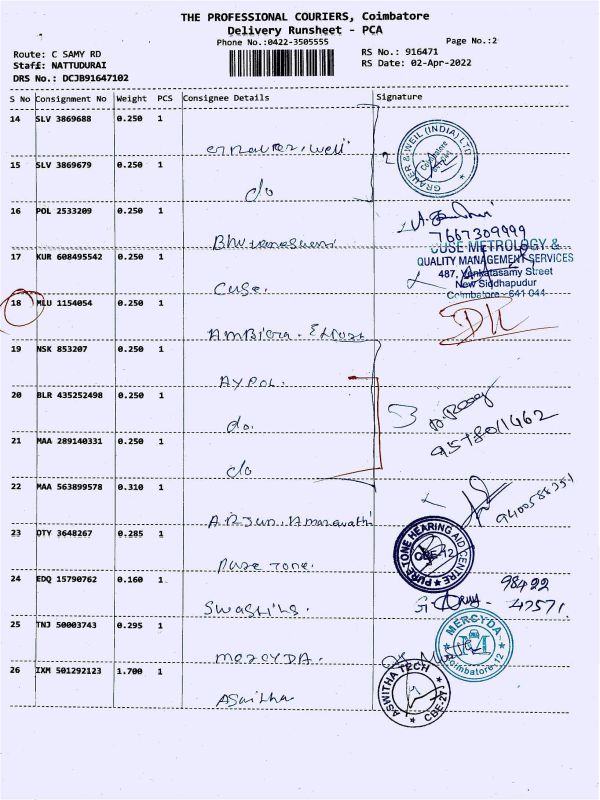 THE PROFESSIONAL COURIERS, Coimbatore
Delivery Runsheet - PCA
Phone No.:0422-3505555
Page No.:2
Route: C SAMY RD
RS No.: 916471
Staff: NATTUDURAI
RS Date: 02-Apr-2022
DRS No.: DCJB91647102
S No Consignment No Weight PCS Consignee Details Signature
14 SLV 3869688 0.250 1
GRAUER & WEIL (INDIA) LTD
Coimbatore
15 SLV 3869679 0.250 1
do
2
16 POL 2533209 0.250 1
Bhuvaneswari
7667309999
17 KUR 608495542 0.250 1
Cuse.
CUSE METROLOGY &
QUALITY MANAGEMENT SERVICES
487, Venkatasamy Street
New Siddhapudur
Coimbatore - 641 044
18 MLU 1154054 0.250 1
AMBicA.
19 NSK 853207 0.250 1
AYPOL.
20 BLR 435252498 0.250 1
do.
3
21 MAA 289140331 0.250 1
do
22 MAA 563899578 0.310 1
ARJun. Amaravathi
23 OTY 3648267 0.285 1
Pure Tone.
PURE TONE HEARING AID CENTRE
CBE-12
24 EDQ 15790762 0.160 1
98422
47571
25 TNJ 50003743 0.295 1
MERCYDA.
MERCYDA
Coimbatore-12
26 IXM 501292123 1.700 1
ASWITHA TECH
CBE-27